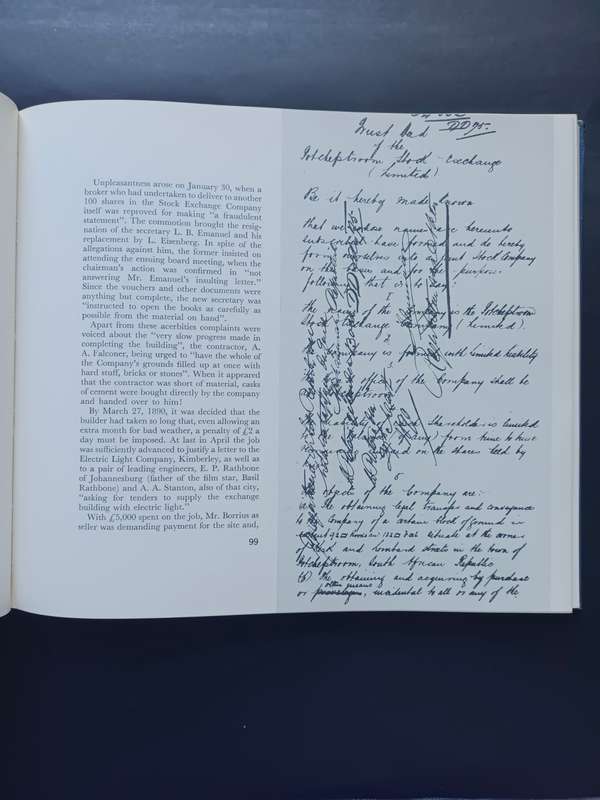 Unpleasantness arose on January 30, when a
broker who had undertaken to deliver to another
100 shares in the Stock Exchange Company
itself was reproved for making "a fraudulent
statement". The commotion brought the resig-
nation of the secretary L. B. Emanuel and his
replacement by L. Eisenberg. In spite of the
allegations against him, the former insisted on
attending the ensuing board meeting, when the
chairman's action was confirmed in "not
answering Mr. Emanuel's insulting letter."
Since the vouchers and other documents were
anything but complete, the new secretary was
"instructed to open the books as carefully as
possible from the material on hand".
Apart from these acerbities complaints were
voiced about the "very slow progress made in
completing the building", the contractor, A.
A. Falconer, being urged to "have the whole of
the Company's grounds filled up at once with
hard stuff, bricks or stones". When it appeared
that the contractor was short of material, casks
of cement were bought directly by the company
and handed over to him!
By March 27, 1890, it was decided that the
builder had taken so long that, even allowing an
extra month for bad weather, a penalty of £2 a
day must be imposed. At last in April the job
was sufficiently advanced to justify a letter to the
Electric Light Company, Kimberley, as well as
to a pair of leading engineers, E. P. Rathbone
of Johannesburg (father of the film star, Basil
Rathbone) and A. A. Stanton, also of that city,
"asking for tenders to supply the exchange
building with electric light."
With £5,000 spent on the job, Mr. Borrius as
seller was demanding payment for the site and,
99
Trust Deed
of the
Potchefstroom Stock Exchange
(Limited)
Be it hereby made known
that we whose names are hereunto
subscribed have formed and do hereby
form ourselves into a Joint Stock Company
on the
following that is to say:
the name of the Company is the Potchefstroom
Stock Exchange Company (Limited).
2
Company is formed with limited liability
office of the Company shall be
Shareholders is limited
from time to time
on the shares held by
6
objects of the Company are:
the obtaining legal transfer and conveyance
to the Company of a certain Stock of Ground
situate at the corner
of and Lombard streets in the town of
Potchefstroom, South African Republic
(b) The obtaining and acquiring by purchase
or other means, incidental to all or any of the